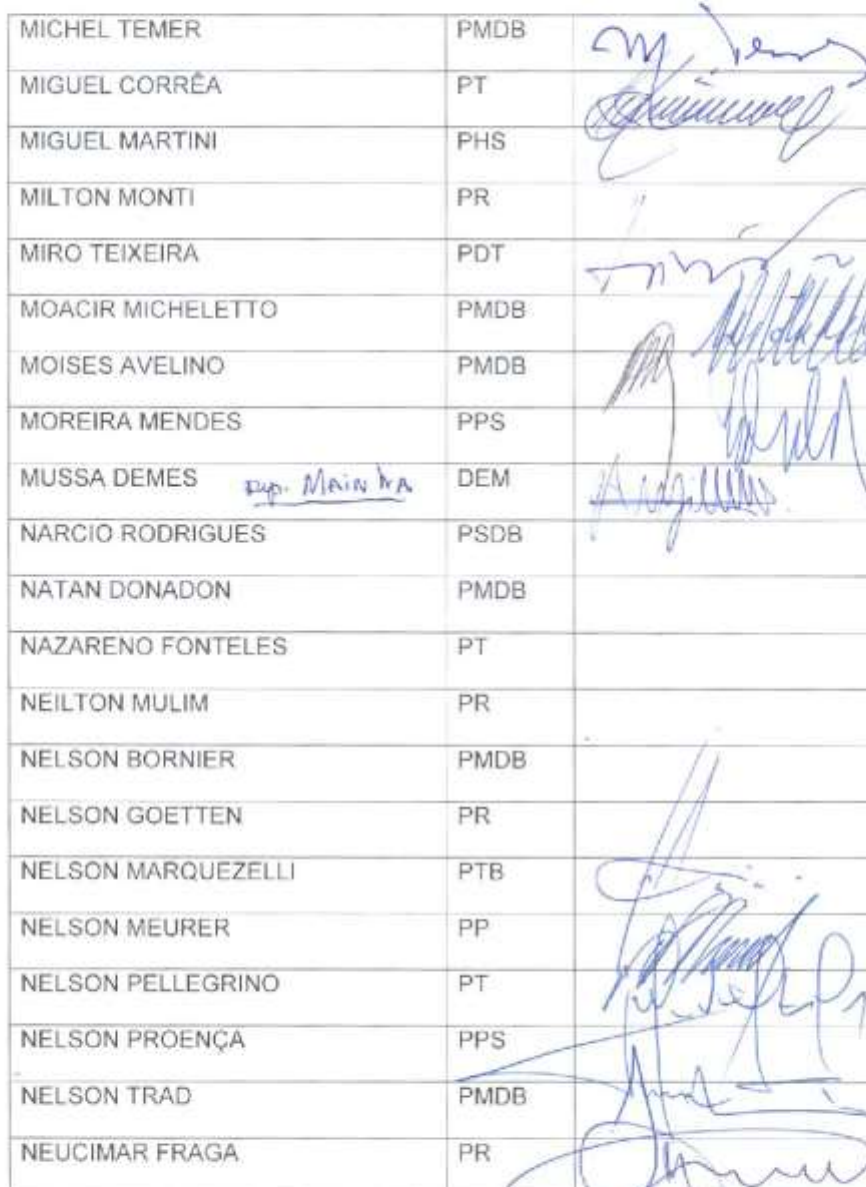 MICHEL TEMER PMDB
MIGUEL CORRÊA PT
MIGUEL MARTINI PHS
MILTON MONTI PR
MIRO TEIXEIRA PDT
MOACIR MICHELETTO PMDB
MOISES AVELINO PMDB
MOREIRA MENDES PPS
MUSSA DEMES Dep. MAINHA DEM
NARCIO RODRIGUES PSDB
NATAN DONADON PMDB
NAZARENO FONTELES PT
NEILTON MULIM PR
NELSON BORNIER PMDB
NELSON GOETTEN PR
NELSON MARQUEZELLI PTB
NELSON MEURER PP
NELSON PELLEGRINO PT
NELSON PROENÇA PPS
NELSON TRAD PMDB
NEUCIMAR FRAGA PR